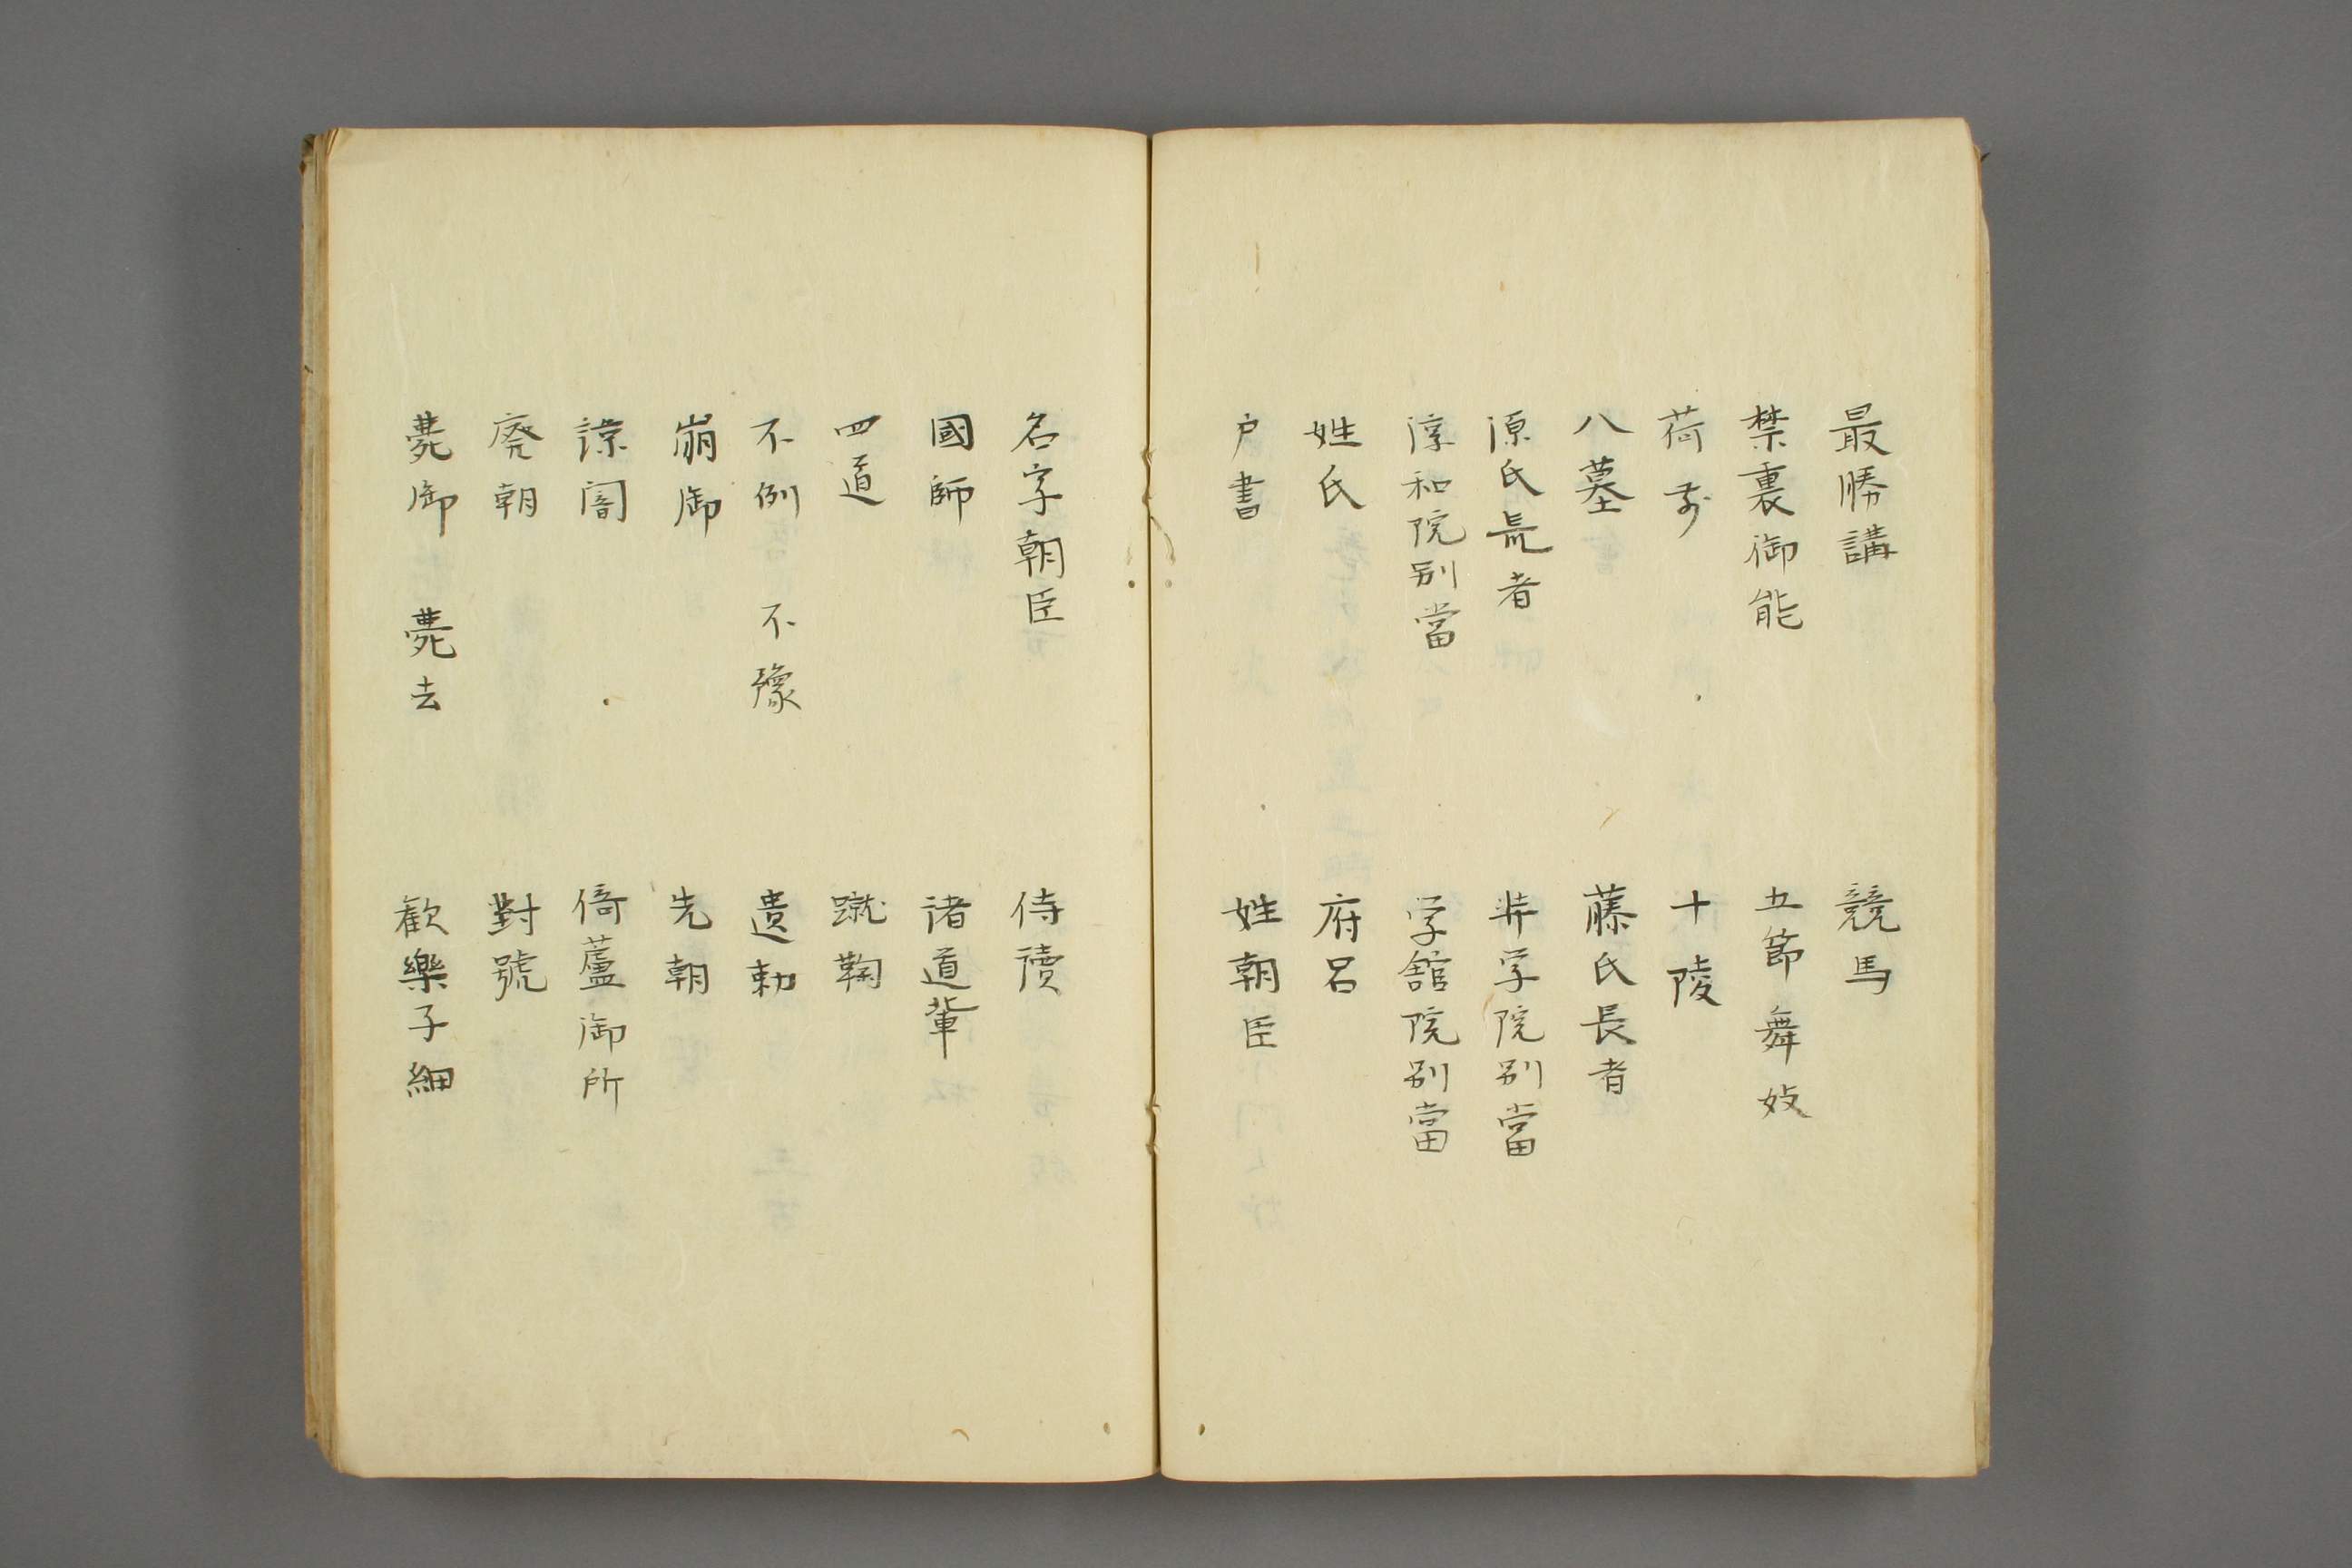 最勝講　競馬
禁裏御能　五節舞妓
荷前　十陵
八墓　藤氏長者
源氏長者　弉学院別當
淳和院別當　学舘院別當
姓氏　府名
戸書　姓朝臣
名字朝臣　侍讀
國師　諸道輩
四道　蹴鞠
不例　不豫　遺勅
崩御　先朝
諒闇　倚蘆御所
廃朝　對號
薨御　薨去　歓樂子細